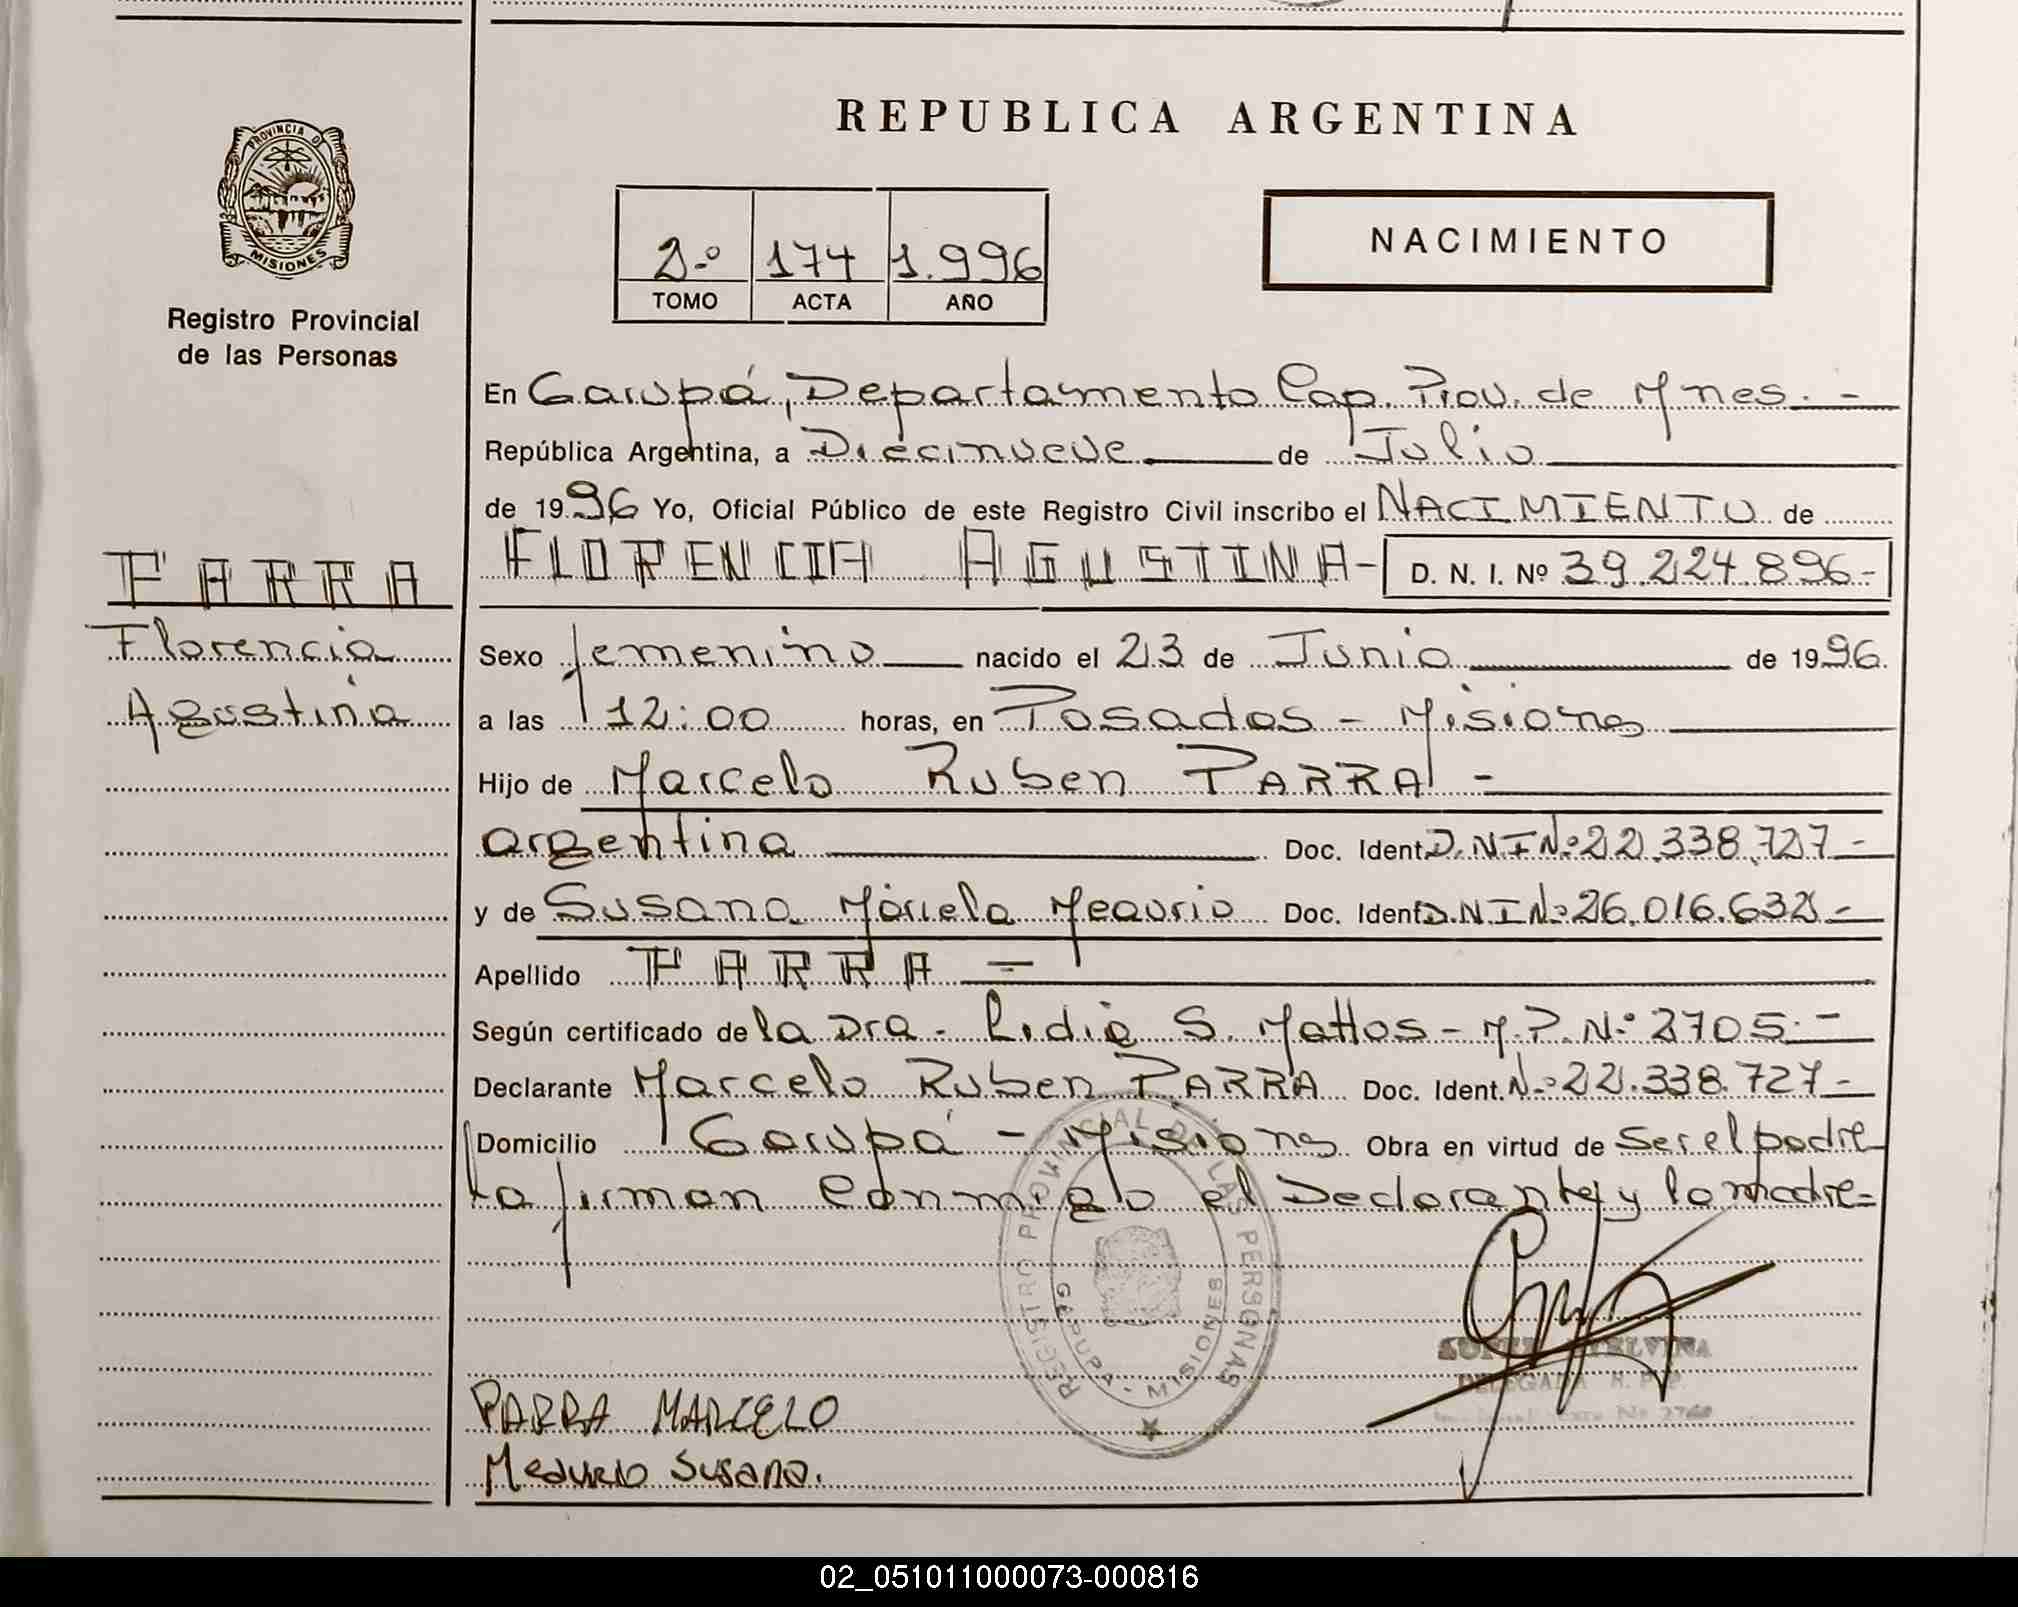 REPUBLICA ARGENTINA
PROVINCIA D
MISIONES
Registro Provincial
de las Personas
2º 174 1.996
TOMO ACTA AÑO
NACIMIENTO
En Garupá, Departamento Cap. Prov. de Mnes. -
República Argentina, a Diecinueve de Julio
de 1996 Yo, Oficial Público de este Registro Civil inscribo el NACIMIENTO de
FLORENCIA AGUSTINA- D. N. I. Nº 39.224.896-
PARRA
Florencia
Agustina
Sexo femenino nacido el 23 de Junio de 1996.
a las 12:00 horas, en Posadas - Misiones
Hijo de Marcelo Ruben PARRA -
argentina Doc. Ident. D.N.I Nº 22.338.727-
y de Susana Mariela Meaurio Doc. Ident. D.N.I Nº 26.016.632-
Apellido PARRA -
Según certificado de la Dra. Lidia S. Mattos - M.P. Nº 2705.-
Declarante Marcelo Ruben PARRA Doc. Ident. Nº 22.338.727-
Domicilio Garupá - Misiones Obra en virtud de Ser el padre
firman Conmigo el Declarante y la madre=
REGISTRO PROVINCIAL DE LAS PERSONAS
GARUPA - MISIONES
PARRA MARCELO
Meaurio Susana.
02_051011000073-000816